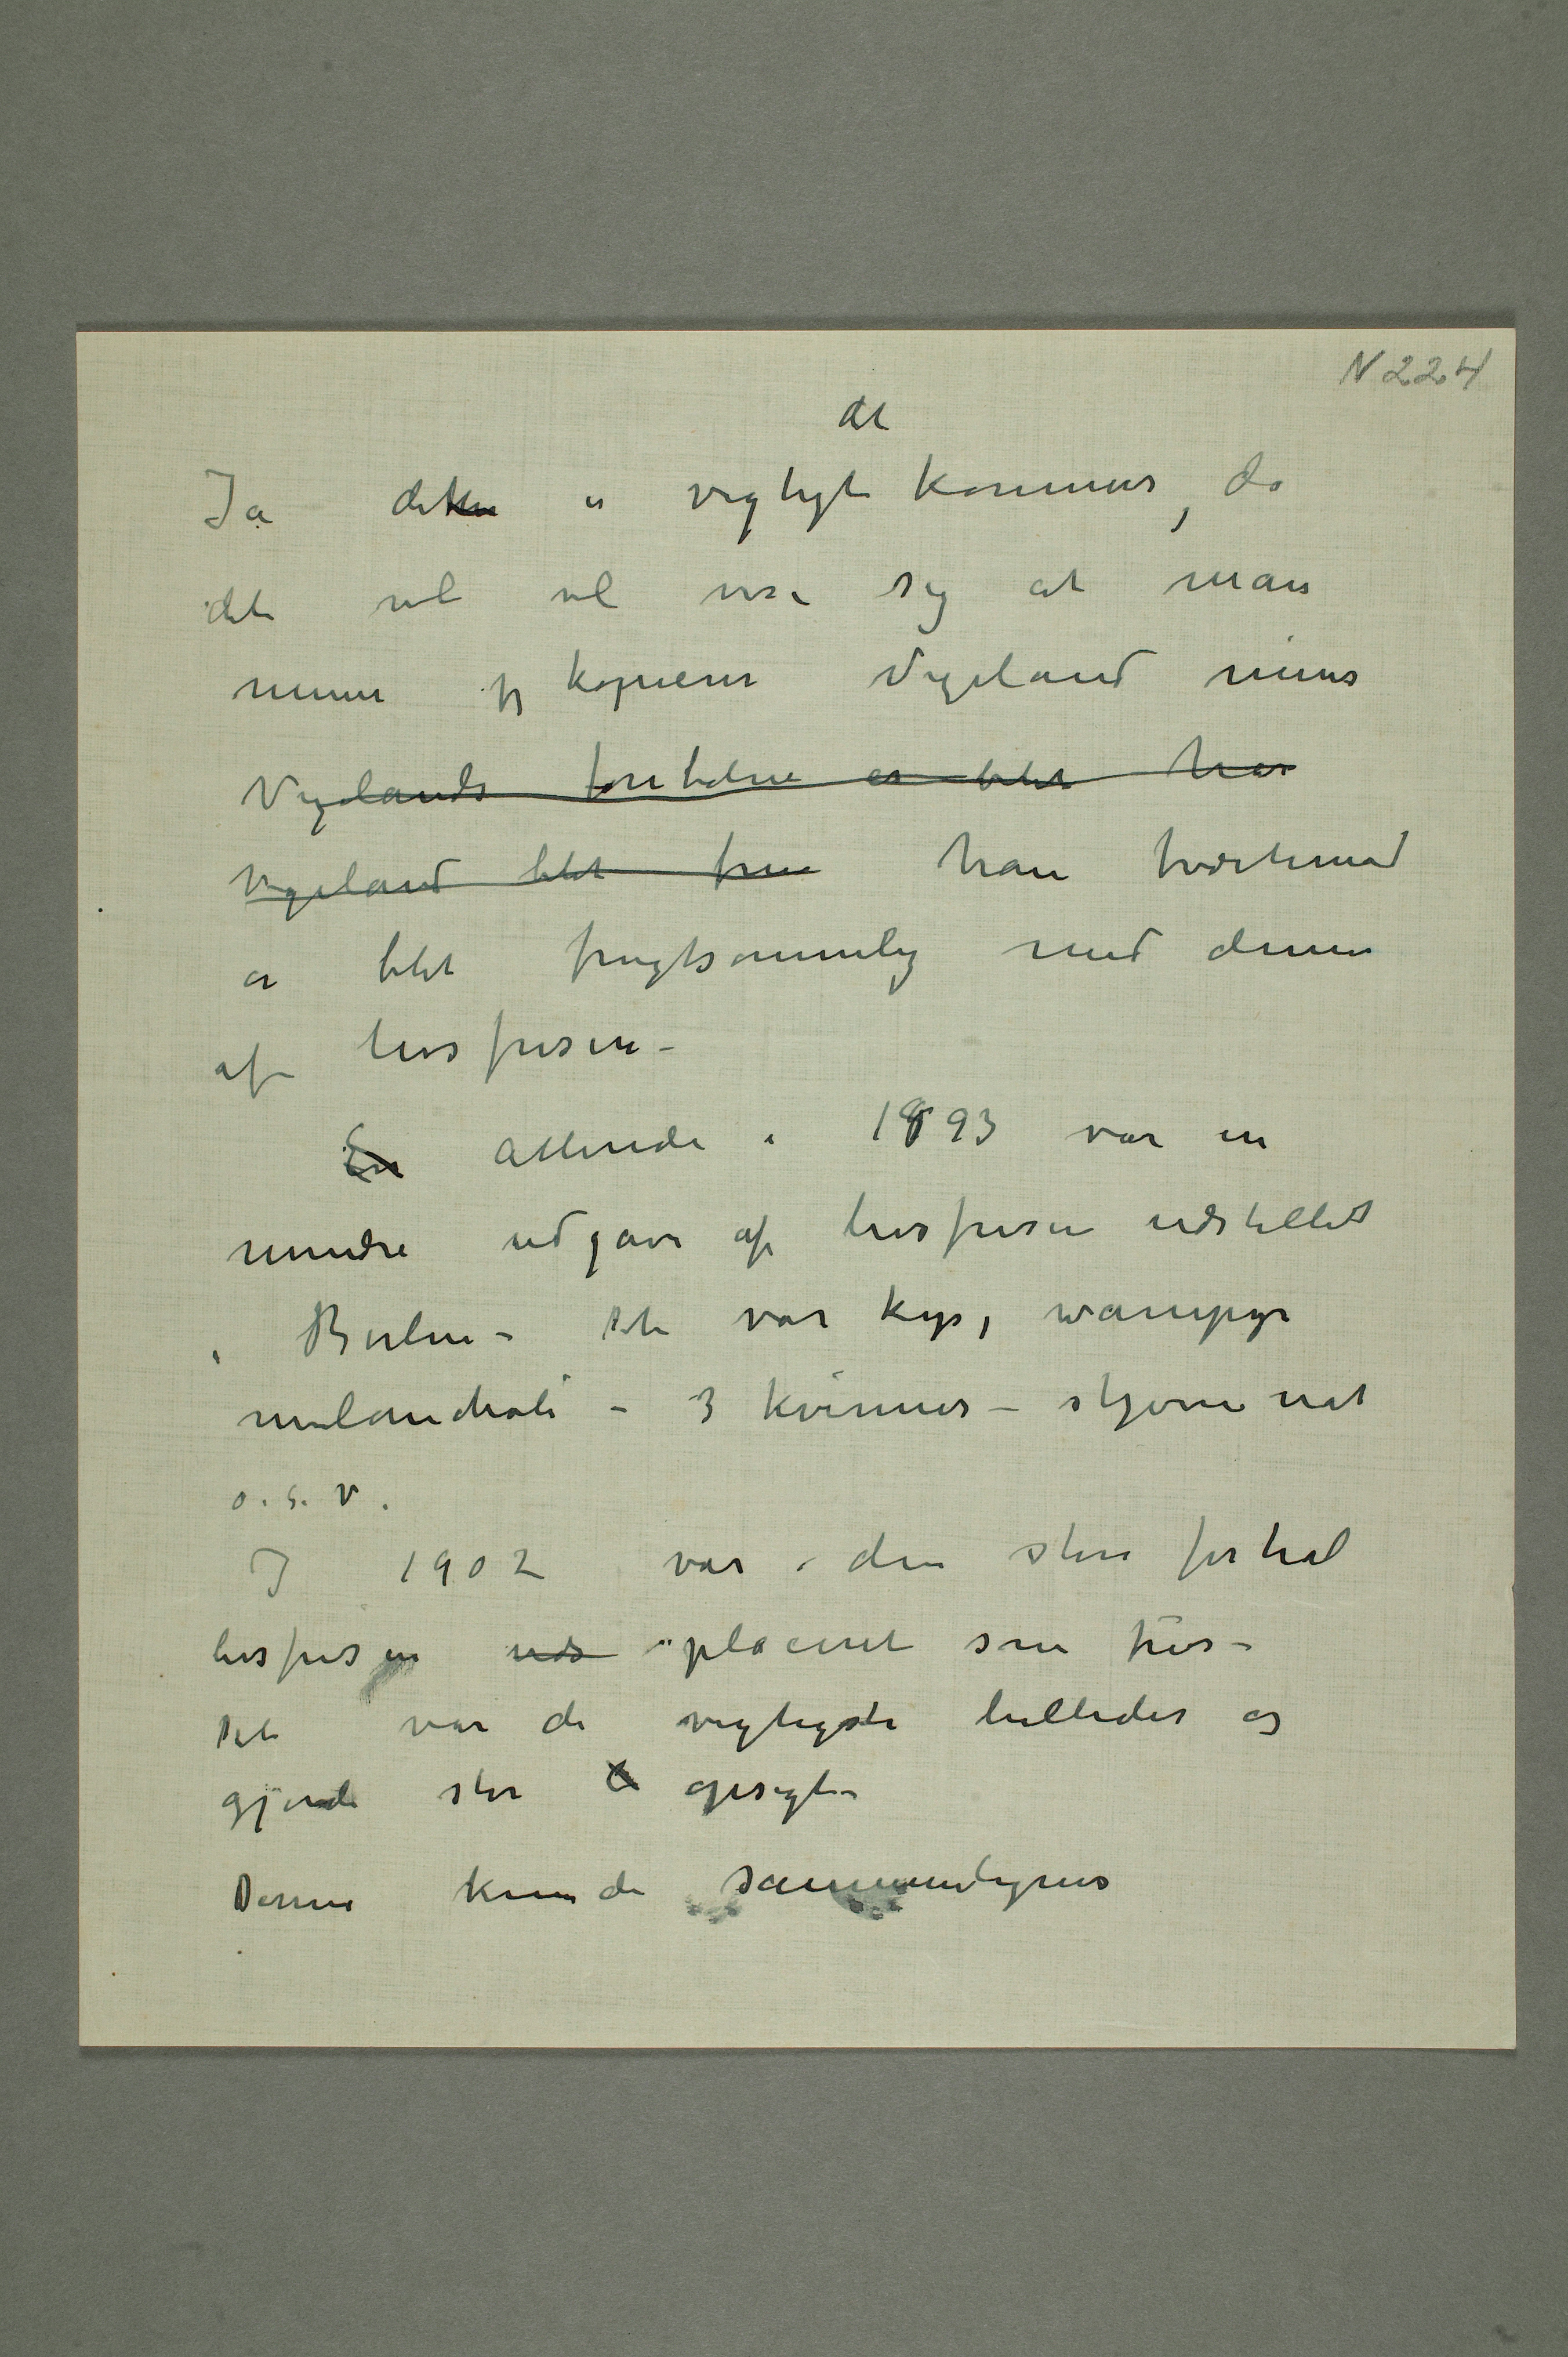 N 224
at
Ja det er vigtigt kommer, da
det vel vil vise sig at man
mener jeg kopierer Vigeland mens
Vigelands fontæne er blet har
Vigeland blet frem han tvertimod
er blet frugtsommelig med denne
af livsfrisen –
En Allerede i 1893 var en
mindre udgave af livsfrisen udstillet
i Berlin – Det var kys, wampyr
melancholi – 3 kvinner – stjernenat
o.s.v.
I 1902 var i den store forhal
livsfrisen uds placeret som fris –
Det var de vigtigste billeder og
gjorde stor opsigt –
Denne kunde sammenlignes